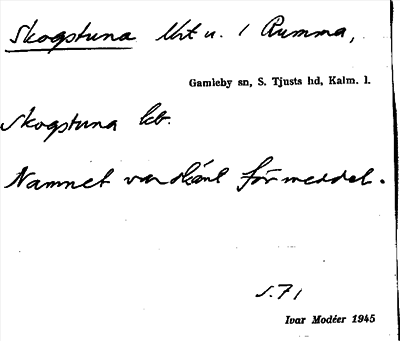 Skogstuna lht u. 1 Rumma,
Gamleby sn, S. Tjusts hd, Kalm. l.
Skogstuna lht.
Namnet var okänt för meddel.
s. 71
Ivar Modéer 1945